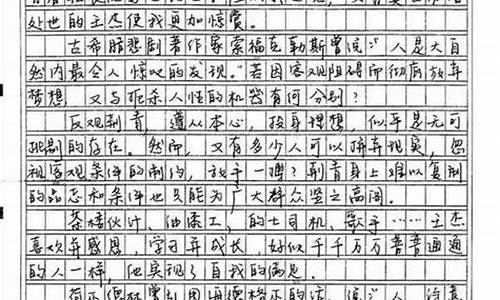 处世的王杰使我更加惊赏。
古希腊悲剧著作家索福克勒斯曾说：“人是大自
然内最令人惊叹的发现。”若因客观阻碍而彻底放弃
梦想，又与抠杀人性的机器有何分别？
反观荆青，遵从本心，投身理想，似乎是无可
挑剔的存在。然而，又有多少人可以摒弃现实，忽
视客观条件的制约，放手一搏？荆青身上难以复制
的品态和条件也只能为广大群众竖之高阁。
茶楼伙计、油漆工、的士司机、歌手……王杰
喜欢并感恩，学习并成长，好似千千万万普普通通
的人一样，他实现了自我的满足。